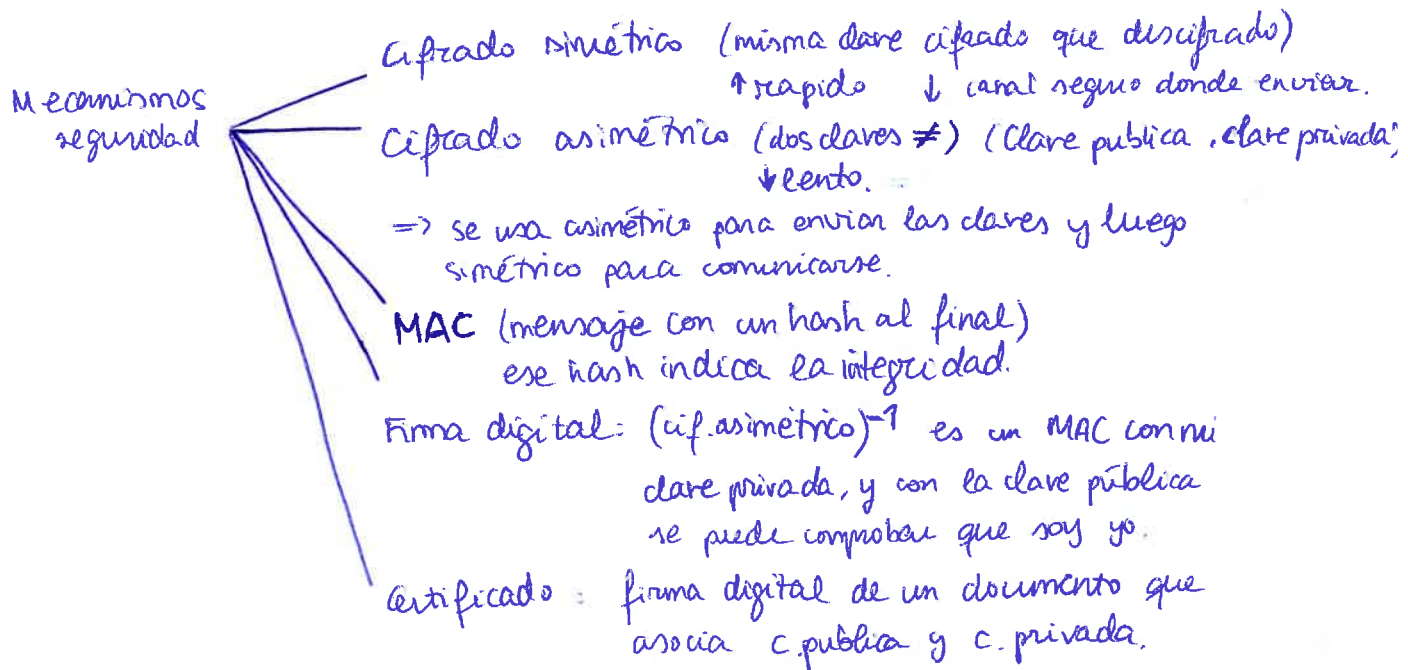 Mecanismos
seguridad
Cifrado simétrico (misma clave cifrado que descifrado)
↑ rapido ↓ canal seguro donde enviar.
Cifrado asimétrico (dos claves ≠) (Clave publica, clave privada)
↓ lento.
=> se usa asimétrico para enviar las claves y luego
simétrico para comunicarse.
MAC (mensaje con un hash al final)
ese hash indica la integridad.
Firma digital: (cif. asimétrico)⁻¹ es un MAC con mi
clave privada, y con la clave pública
se puede comprobar que soy yo.
Certificado: firma digital de un documento que
asocia c. publica y c. privada.